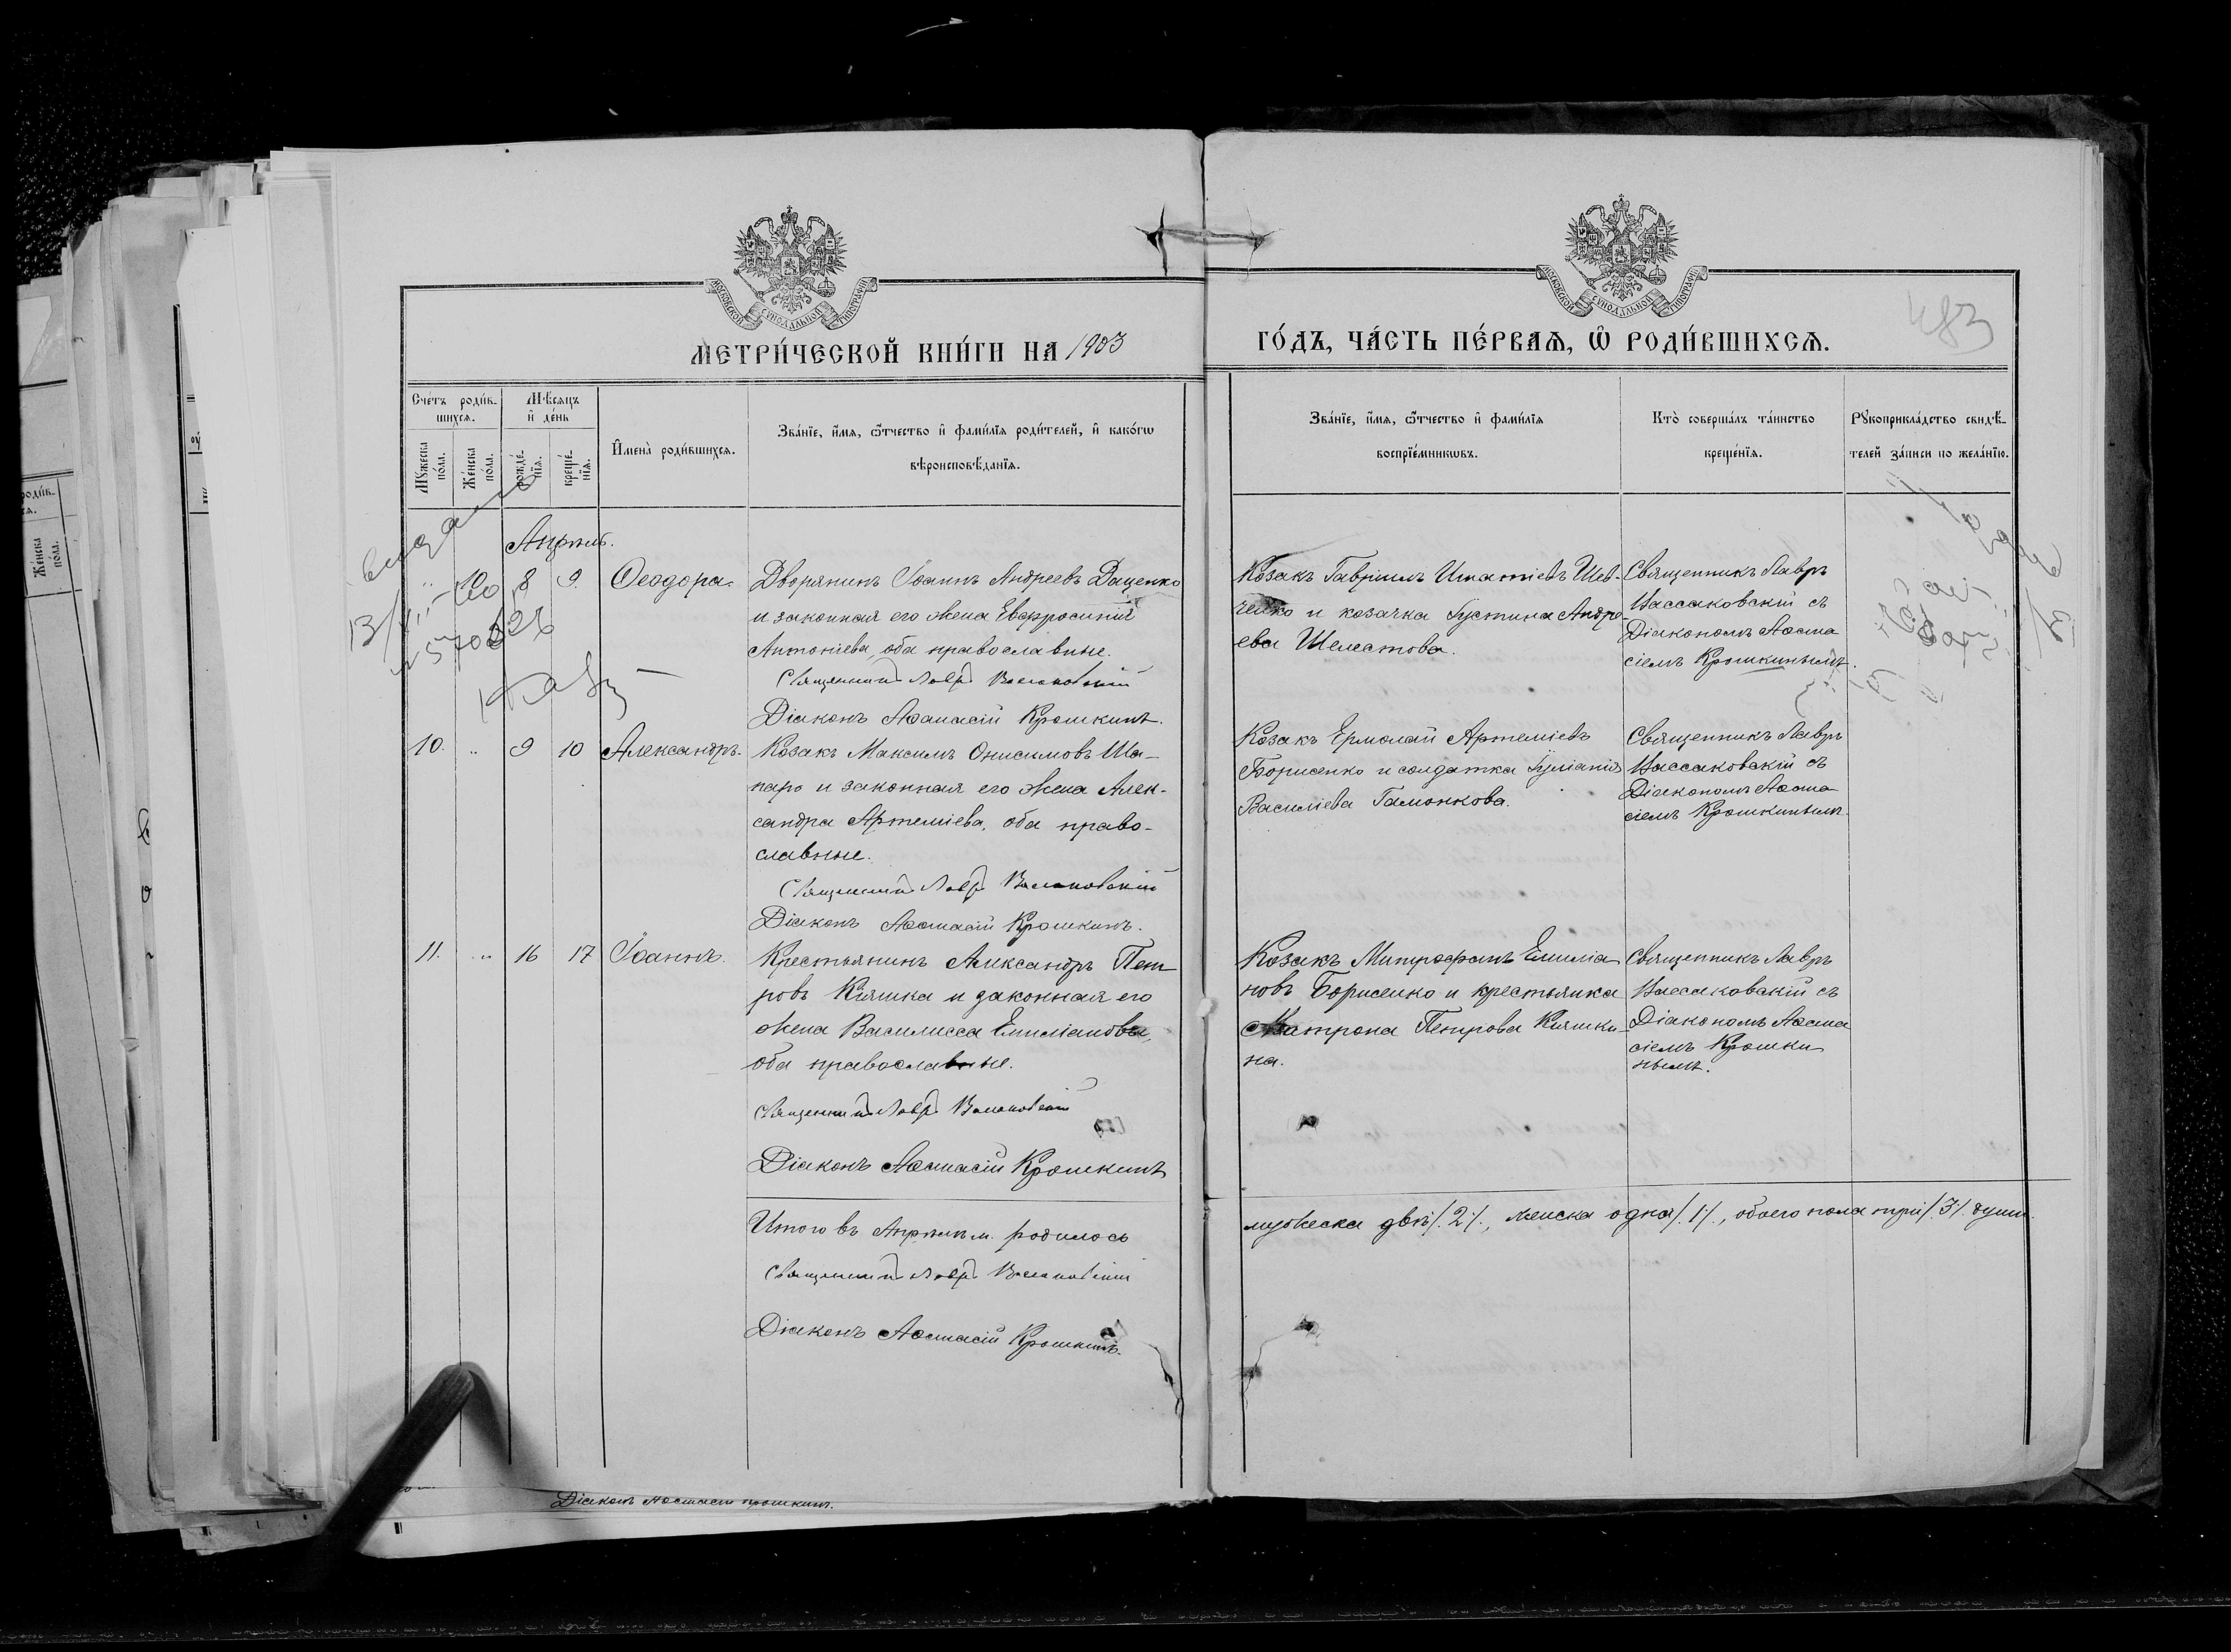 МОСКОВСКОЙ СУНОДАЛЬНОЙ ТИПОГРАФІИ
МОСКОВСКОЙ СУНОДАЛЬНОЙ ТИПОГРАФІИ
МЕТРИ́ЧЕСКОЙ КНИ́ГИ НА 1903
ГО́ДЪ, ЧА́СТЬ ПЕ́РВАѦ, Ѡ҆ РОДИ́ВШИХСѦ.
483
Сче́тъ роди́в-
шихсѧ.
Мꙋ́жеска по́ла.
Же́нска по́ла.
Мѣ́сѧцъ
и҆ де́нь
рожде́-
нїѧ.
креще́-
нїѧ.
И҆мена̀ роди́вшихсѧ.
Зва́нїе, и҆́мѧ, ѻ҆́тчество и҆ фами́лїѧ роди́телей, и҆ како́гѡ
вѣроисповѣ́данїѧ.
Зва́нїе, и҆́мѧ, ѻ҆́тчество и҆ фами́лїѧ
воспрїе́мникѡвъ.
Кто̀ соверша́лъ та́инство
креще́нїѧ.
Рꙋкоприкла́дство свидѣ́-
телей за́писи по жела́нїю.
Апрѣль.
10 8 9. Ѳеодора.
Дворянинъ Іоаннъ Андреевъ Даценко
и законная его жена Евфросинія
Антоніева, оба православные.
Священникъ Лавръ Вассаковскій
Діаконъ Аѳанасій Крошкинъ.
Козакъ Гавріилъ Игнатіевъ Шев-
ченко и козачка Іустина Андре-
ева Шелестова.
Священникъ Лавръ
Вассаковскій съ
Діакономъ Аѳана
сіемъ Крошкинымъ.
10. .. 9 10 Александръ.
Козакъ Максимъ Онисимовъ Ша-
паро и законная его жена Алек-
сандра Артеміева, оба право-
славные.
Священникъ Лавръ Вассаковскій
Діаконъ Аѳанасій Крошкинъ.
Козакъ Ермолай Артеміевъ
Борисенко и солдатка Іуліанія
Василіева Гамонкова.
Священникъ Лавръ
Вассаковскій съ
Діакономъ Аѳана
сіемъ Крошкинымъ.
11. .. 16 17 Іоаннъ.
Крестьянинъ Александръ Пет-
ровъ Кіяшка и законная его
жена Василисса Емиліанова,
оба православные.
Священникъ Лавръ Вассаковскій
Діаконъ Аѳанасій Крошкинъ
Козакъ Митрофанъ Емиліа
новъ Борисенко и крестьянка
Матрона Петрова Кіяшки-
на.
Священникъ Лавръ
Вассаковскій съ
Діакономъ Аѳана
сіемъ Крошки
нымъ.
Итого въ Апрѣлѣ м. родилось
мужеска двѣ /.2./, женска одна /.1./, обоего пола три /.3./ души.
Священникъ Лавръ Вассаковскій
Діаконъ Аѳанасій Крошкинъ.
Діаконъ Аѳанасій Крошкинъ.